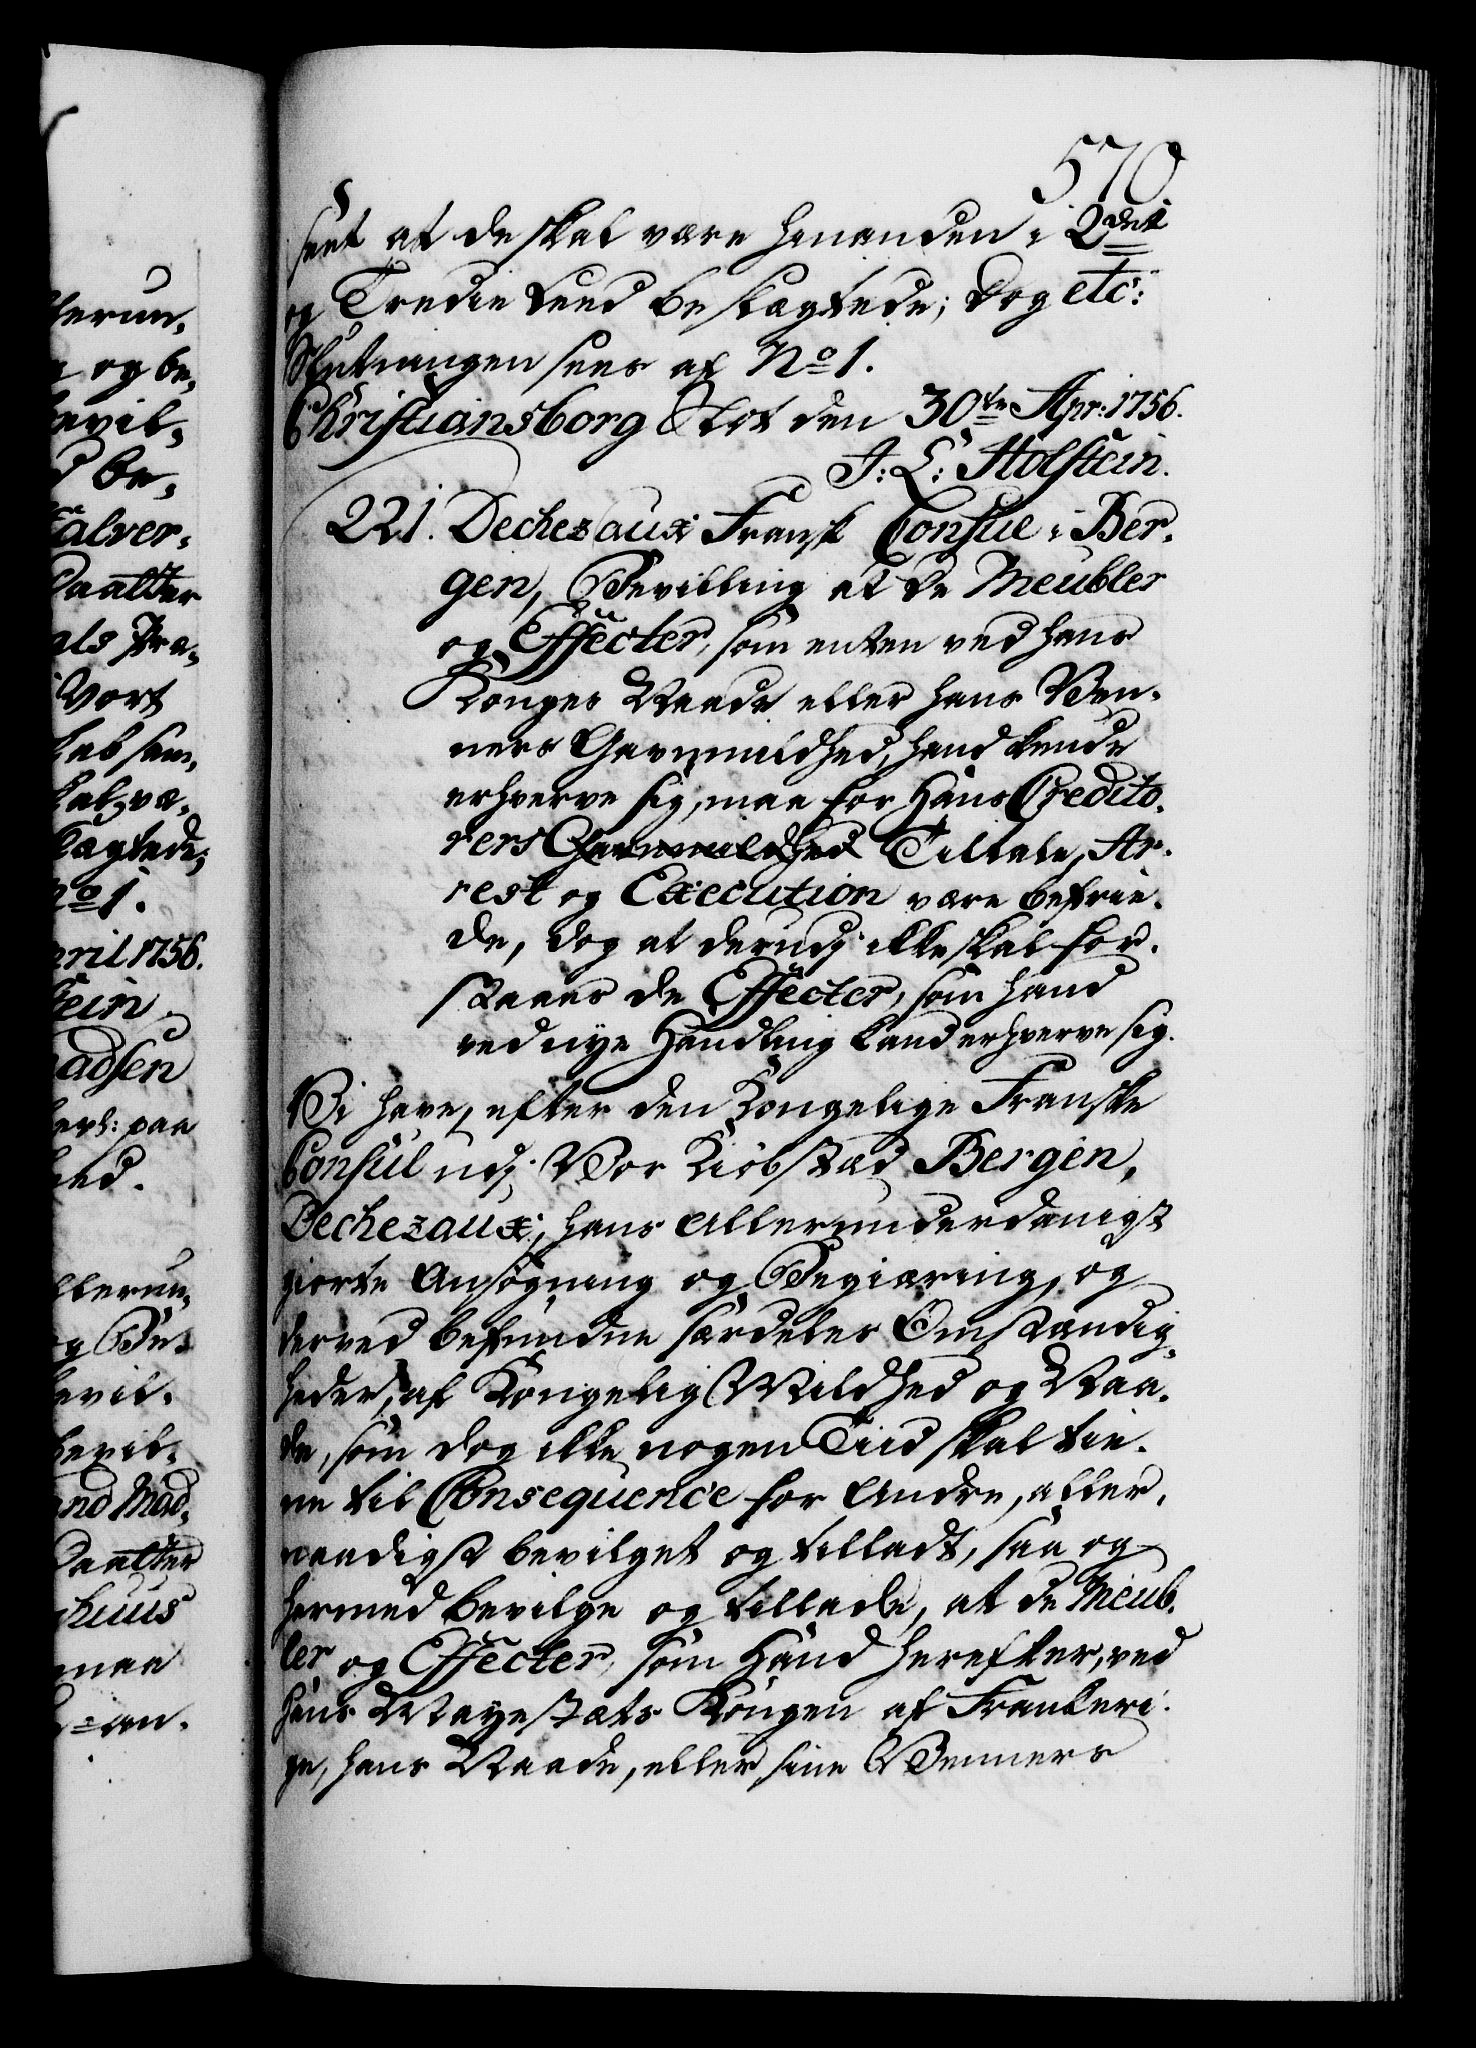 570.
seet at de skal være hinanden i 2det
og Tredie Leed beslægtede; Dog etc:
Slutningen sees af No 1.
Christiansborg Slot den 30te Apr: 1756.
J: L: Holstein.
221. Dechezaux Fransk Consul i Ber-
gen, Bevilling at de Meubler
og Effecter, som enten ved hans
Konges Naade eller hans Ven-
ners Gavnmildhed, hand kunde
erhverve sig, maa for Hans Credito-
rers Gavnmildhed Tiltale, Ar-
rest og Execution være befrie-
de, dog at derudj ikke skal for-
staaes de Effecter, som hand
ved nye Handling kand erhverve sig.
Vi have, efter den Kongelige Franske
Consul udj Vor Kiøbstad Bergen,
Dechezaux, hans allerunderdanigst
giorte Ansøgning og Begiæring, og
derved befundne særdeles Omstændig-
heder, af Kongelig Mildhed og Naa-
de, som dog ikke nogen Tiid skal tie-
ne til Consequence for Andre, aller-
naadigst bevilget og tilladt, saa og
hermed bevilge og tillade, at de Meub-
ler og Effecter, som Hand herefter, ved
hans Mayestæts Kongen af Frankeri-
ge, hans Naade, eller sine Venners